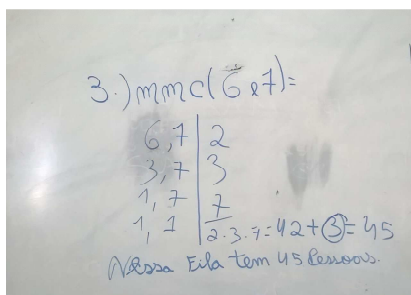 3.) mmc(6 e 7)=
6,7 | 2
3,7 | 3
1,7 | 7
1,1 | 2.3.7=42+3=45
Nessa Fila tem 45 Pessoas.